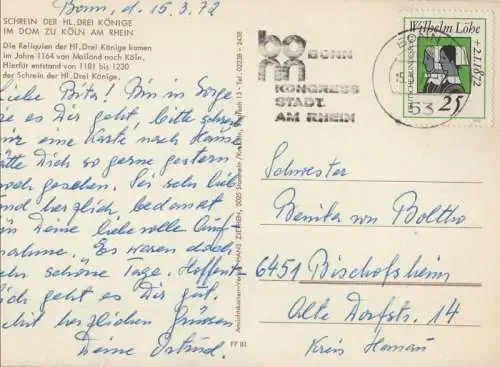 Bonn, d. 15.3.72
SCHREIN DER HL. DREI KÖNIGE
IM DOM ZU KÖLN AM RHEIN
Die Reliquien der Hl. Drei Könige kamen
im Jahre 1164 von Mailand nach Köln.
Hierfür entstand von 1181 bis 1230
der Schrein der Hl. Drei Könige.
Liebe Bita! Bin in Sorge
es Dir geht, bitte schreib
mir eine Karte nach Hause
hätte Dich so gerne gestern
noch gesehen. Sei sehr lieb
und herzlich bedankt
für Deine liebevolle Auf-
nahme. Es waren doch
sehr schöne Tage. Hoffent
lich geht es Dir gut.
Mit herzlichen Grüssen
Deine
FF 81
bonn
BONN
KONGRESS
STADT
AM RHEIN
BONN
53
Wilhelm Löhe
+ 2.1.1872
DEUTSCHE BUNDESPOST
25
Schwester
Benita von Boltho
6451 Bischofsheim
Alte Dorfstr. 14
Kreis Hanau